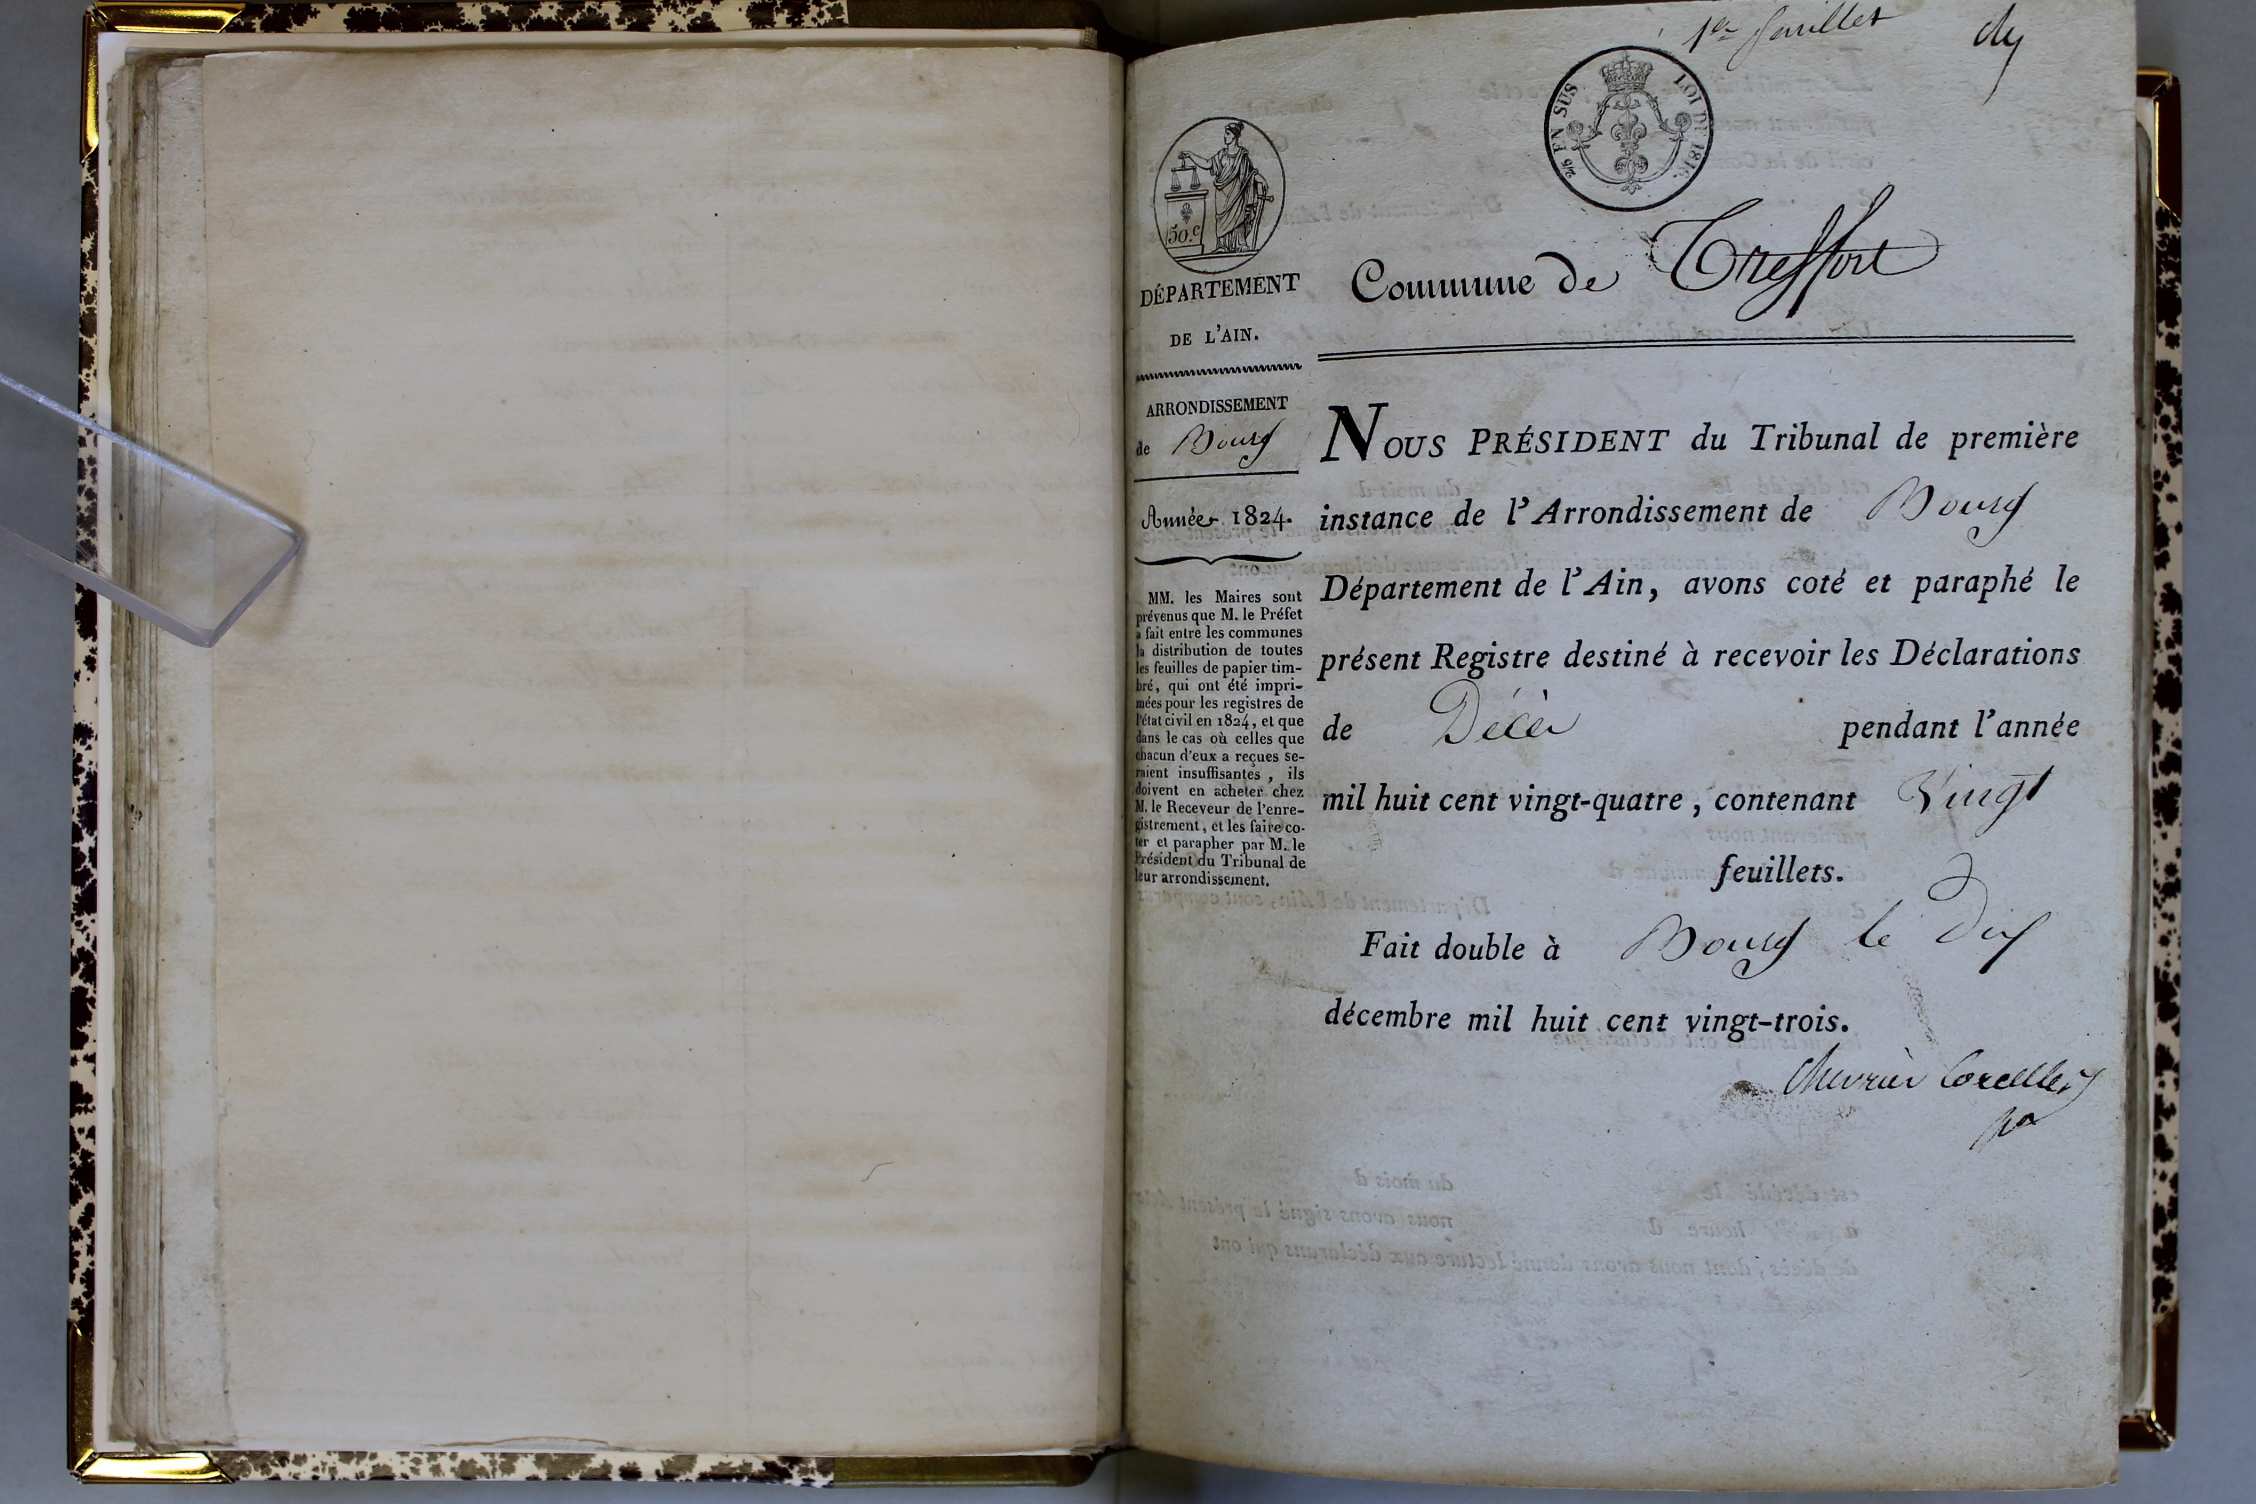 1er feuillet
25 EN SUS. LOI DE 1816.
50.c
DÉPARTEMENT
DE L'AIN.
ARRONDISSEMENT
de Bourg
Année 1824.
MM. les Maires sont
prévenus que M. le Préfet
a fait entre les communes
la distribution de toutes
les feuilles de papier tim-
bré, qui ont été impri-
mées pour les registres de
l'état civil en 1824, et que
dans le cas où celles que
chacun d'eux a reçues se-
raient insuffisantes, ils
doivent en acheter chez
M. le Receveur de l'enre-
gistrement, et les faire co-
ter et parapher par M. le
Président du Tribunal de
leur arrondissement.
Commune de Treffort
NOUS PRÉSIDENT du Tribunal de première
instance de l'Arrondissement de Bourg
Département de l'Ain, avons coté et paraphé le
présent Registre destiné à recevoir les Déclarations
de Décès pendant l'année
mil huit cent vingt-quatre, contenant Vingt
feuillets.
Fait double à Bourg le Dix
décembre mil huit cent vingt-trois.
Chevrier Corcelles